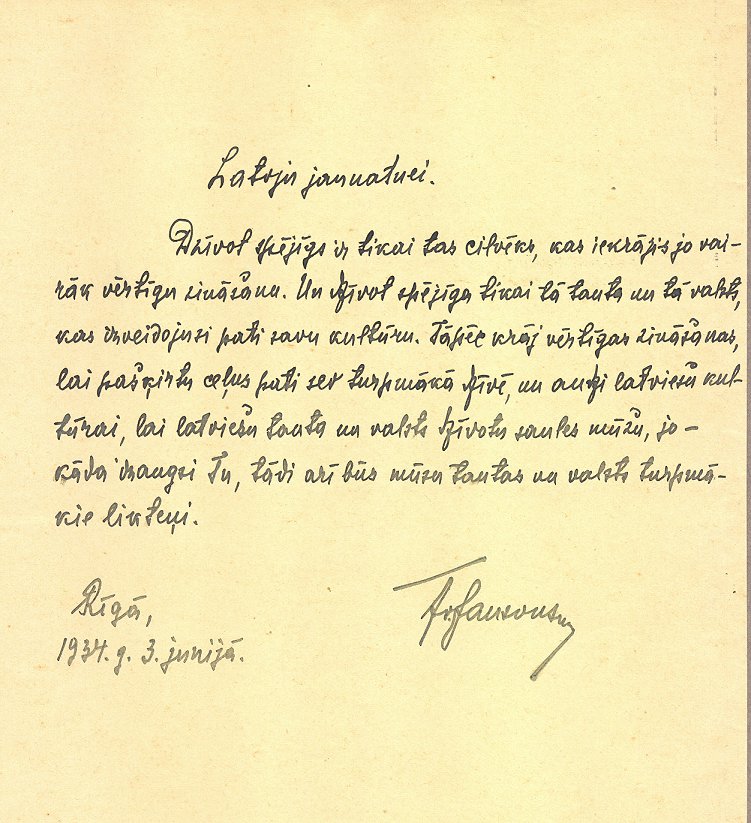 Latvju jaunatnei.
Dzīvot spējīgs ir tikai tas cilvēks, kas iekrājis jo vai-
rāk vērtīgu zināšanu. Un dzīvot spējīga tikai tā tauta un tā valsts,
kas izveidojusi pati savu kultūru. Tāpēc krāj vērtīgas zināšanas,
lai pašķirtu ceļus pati sev turpmākā dzīvē, un audzi latviešu kul-
tūrai, lai latviešu tauta un valsts dzīvotu saules mūžu, jo -
kāda izaugsi Tu, tādi arī būs mūsu tautas un valsts turpmā-
kie likteņi.
Rīgā,
1934. g. 3. junijā.